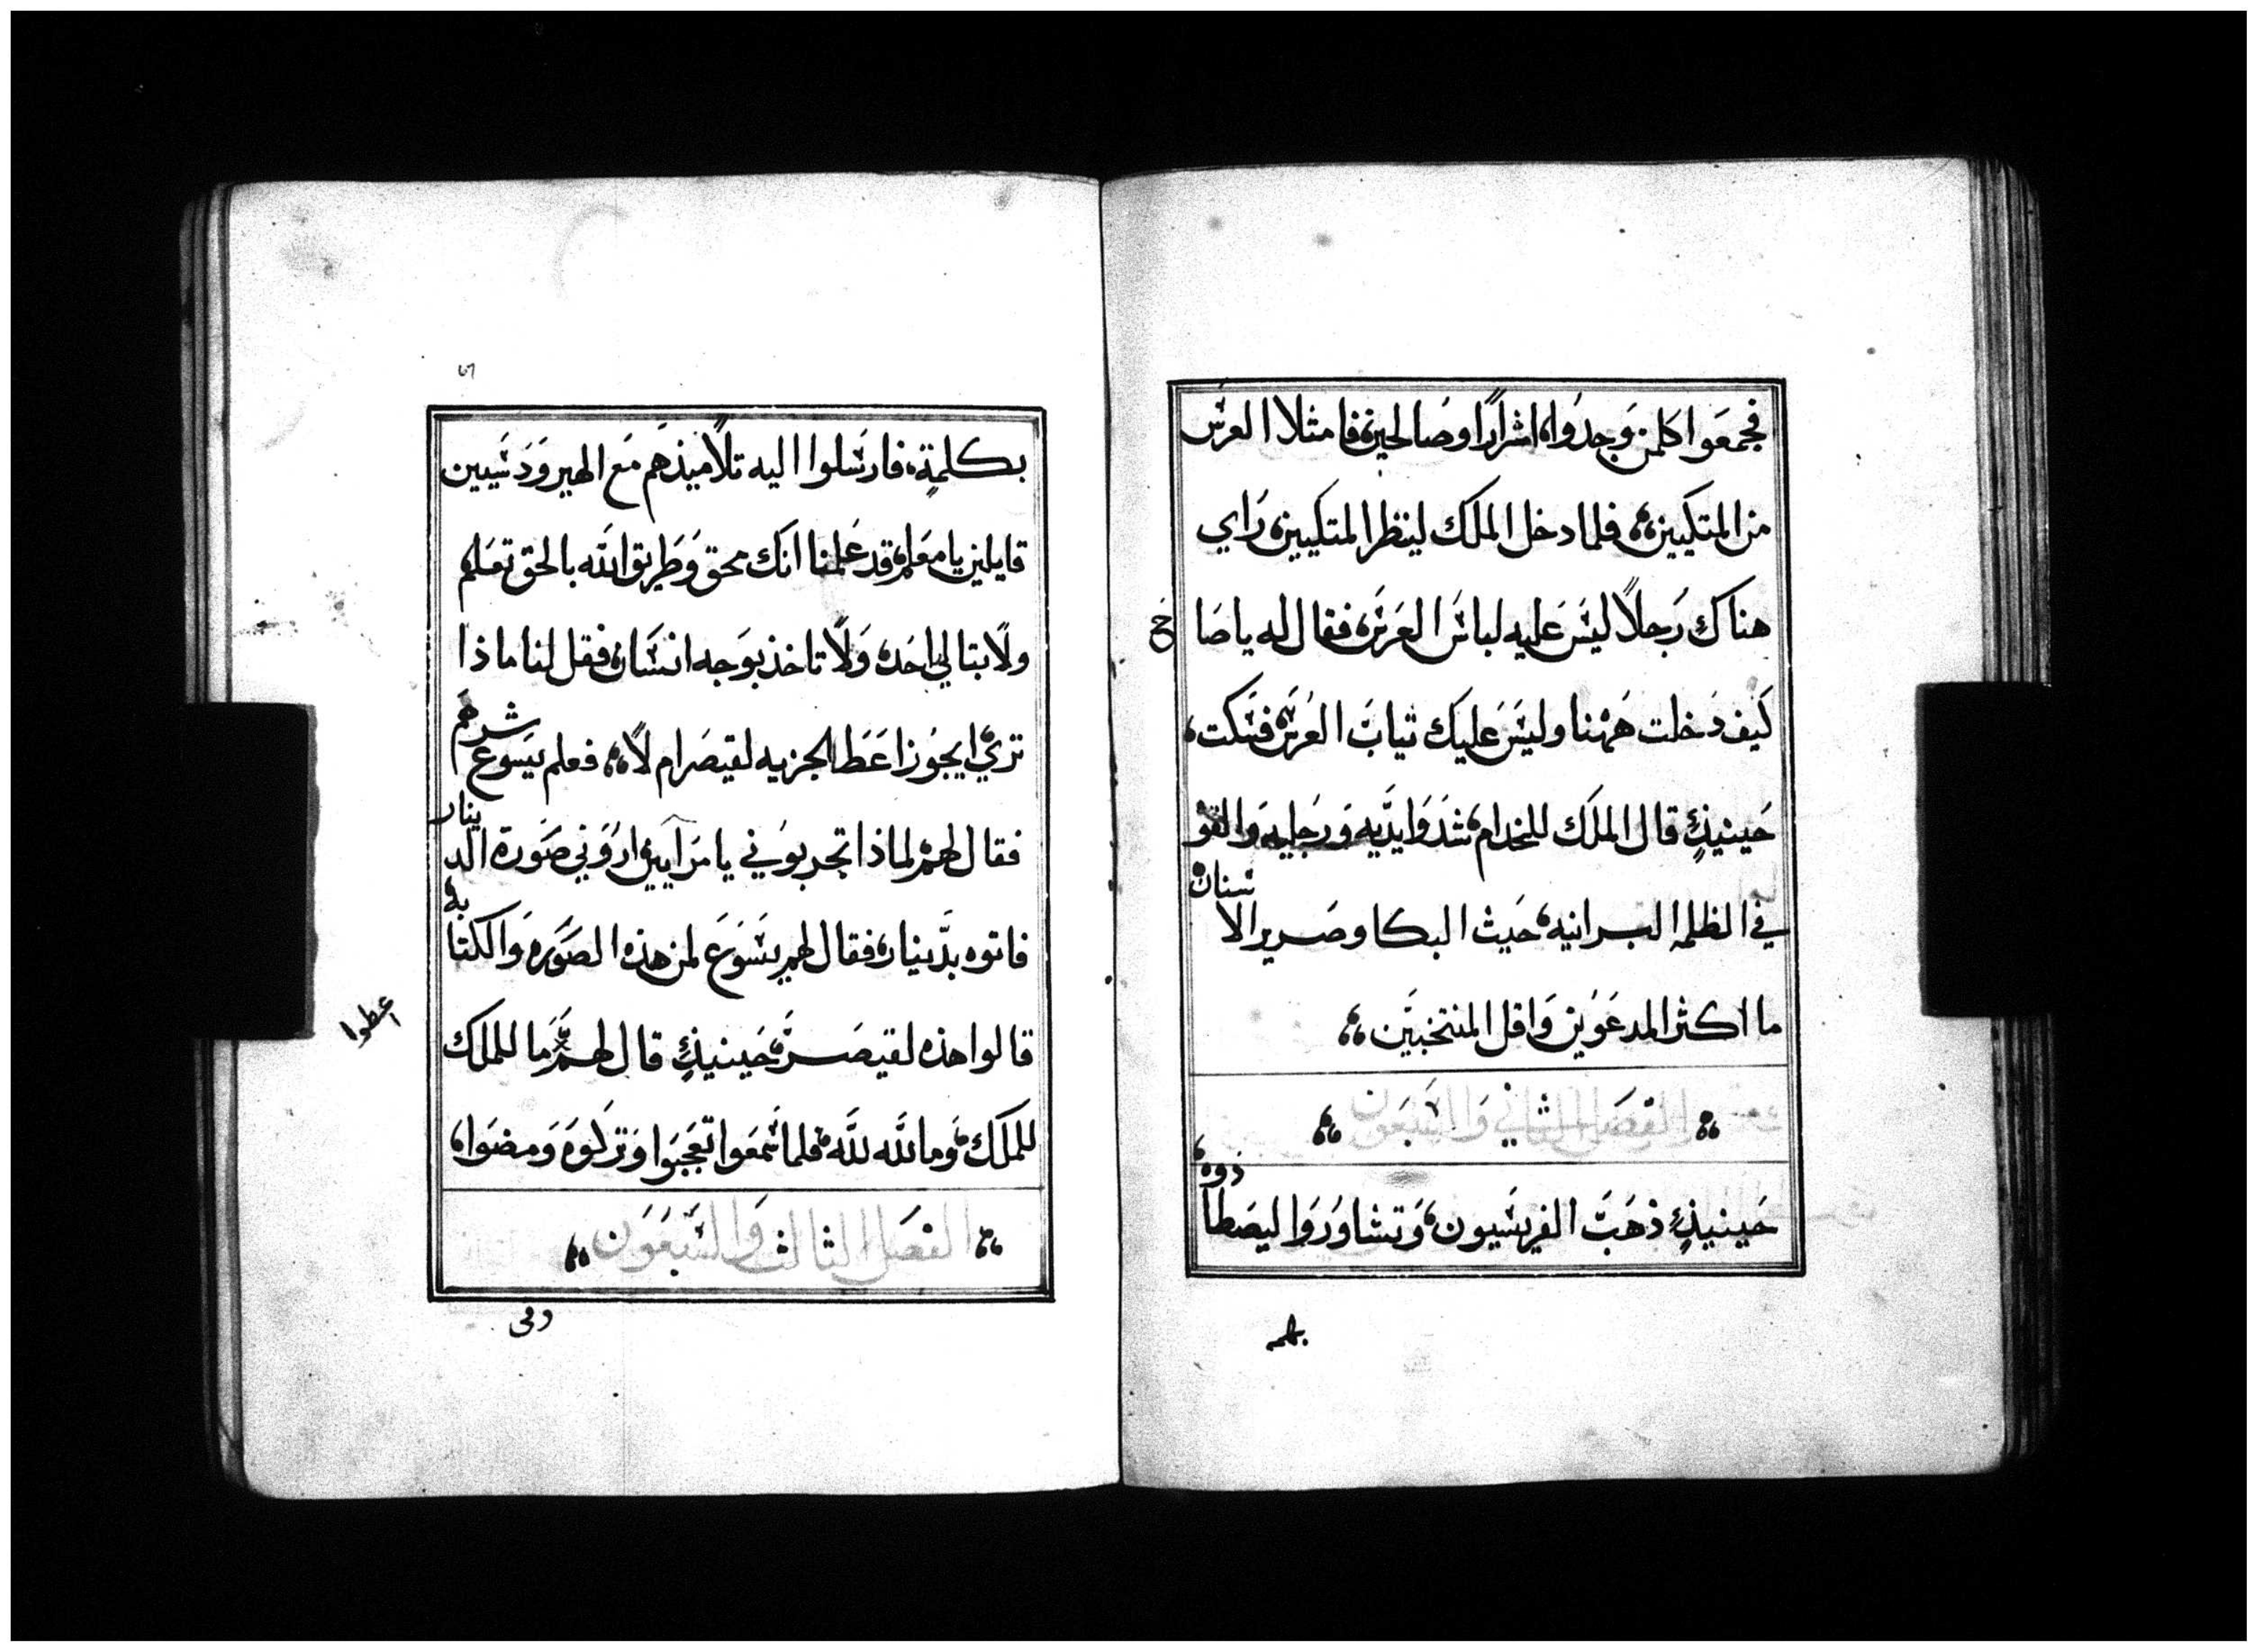 فجمعوا كلمن وجدوا، اشرارًا وصالحين، فامتلا العرس
من المتكيين، فلما دخل الملك لينظر المتكيين، راي
هناك رجلاً ليس عليه لباس العرس، فقال له ياصا
ح
كيف دخلت ههنا وليس عليك ثياب العرس، فسكت،
حينيذٍ قال الملك للخدام، شدوا يديه ورجليه والقو
في الظلمه البرانيه، حيث البكا وصرير الا
سنان،
ما اكثر المدعوين واقل المنتخبين،
الفصل الثاني والسبعون
حينيذٍ ذهب الفريسيون، وتشاوروا ليصطا
ذوه،
بكلمه
بكلمةٍ، فارسلوا اليه تلاميذهم مع الهيرودسيين
قايلين يا معلم، قد علمنا انك محق وطريق الله بالحق تعلم
ولا تبالي احد، ولا تاخذ بوجه انسان، فقل لنا ماذا
تري ايجوز اعطا الجزيه لقيصر ام لا، فعلم يسوع
شرهم
فقال لهم لماذا تجربوني يا مرايين اروني صورة الد
ينار
فاتوه بدينار، فقال لهم يسوع لمن هذه الصوره والكتا
به
قالوا هذه لقيصر، حينيذٍ قال لهم ما للملك
اعطوا
للملك، وما لله لله، فلما سمعوا تعجبوا وتركوه ومضوا،
الفصل الثالث والسبعون
وفى